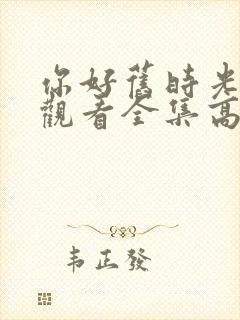 你好舊時光
觀看全集高
韦正發